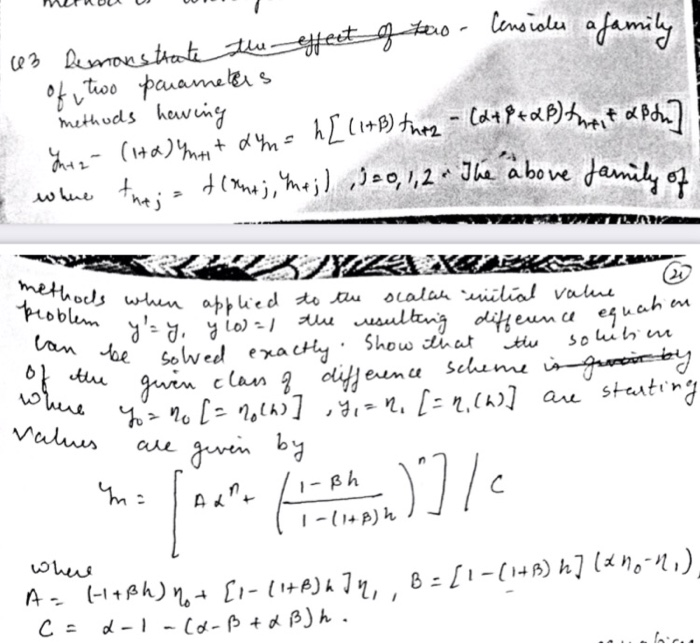 Q3 Demonstrate the effect of zero - Consider a family
of two parameters
methods having
y_{n+2} - (1+α)y_{n+1} + αy_n = h[(1+β)f_{n+2} - (α+β+αβ)f_{n+1} + αβf_n]
where f_{n+j} = f(x_{n+j}, y_{n+j}), j=0,1,2. The above family of
21
methods when applied to the scalar initial value
problem y'=y, y(0)=1 the resulting difference equation
can be solved exactly. Show that the solution
of the given class of difference scheme is given by
where y_0 = η_0 [= η_0(h)], y_1 = η_1 [= η_1(h)] are starting
values are given by
y_n = [Aα^n + ((1-βh)/(1-(1+β)h))^n] / C
where
A = (-1+βh)η_0 + [1-(1+β)h]η_1, B = [1-(1+β)h](αη_0-η_1),
C = α-1-(α-β+αβ)h.